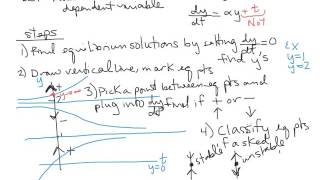 dependent variable
dy/dt = αy + t
Not
steps
1) Find equilibrium solutions by setting dy/dt = 0
find y's
ex
y=1
y=2
2) Draw vertical line, mark eq pts
3) Pick a point between eq pts and
plug into dy/dt find if + or -
4) Classify eq pts
if asked
stable
unstable
y
+
-
+
y=0
t